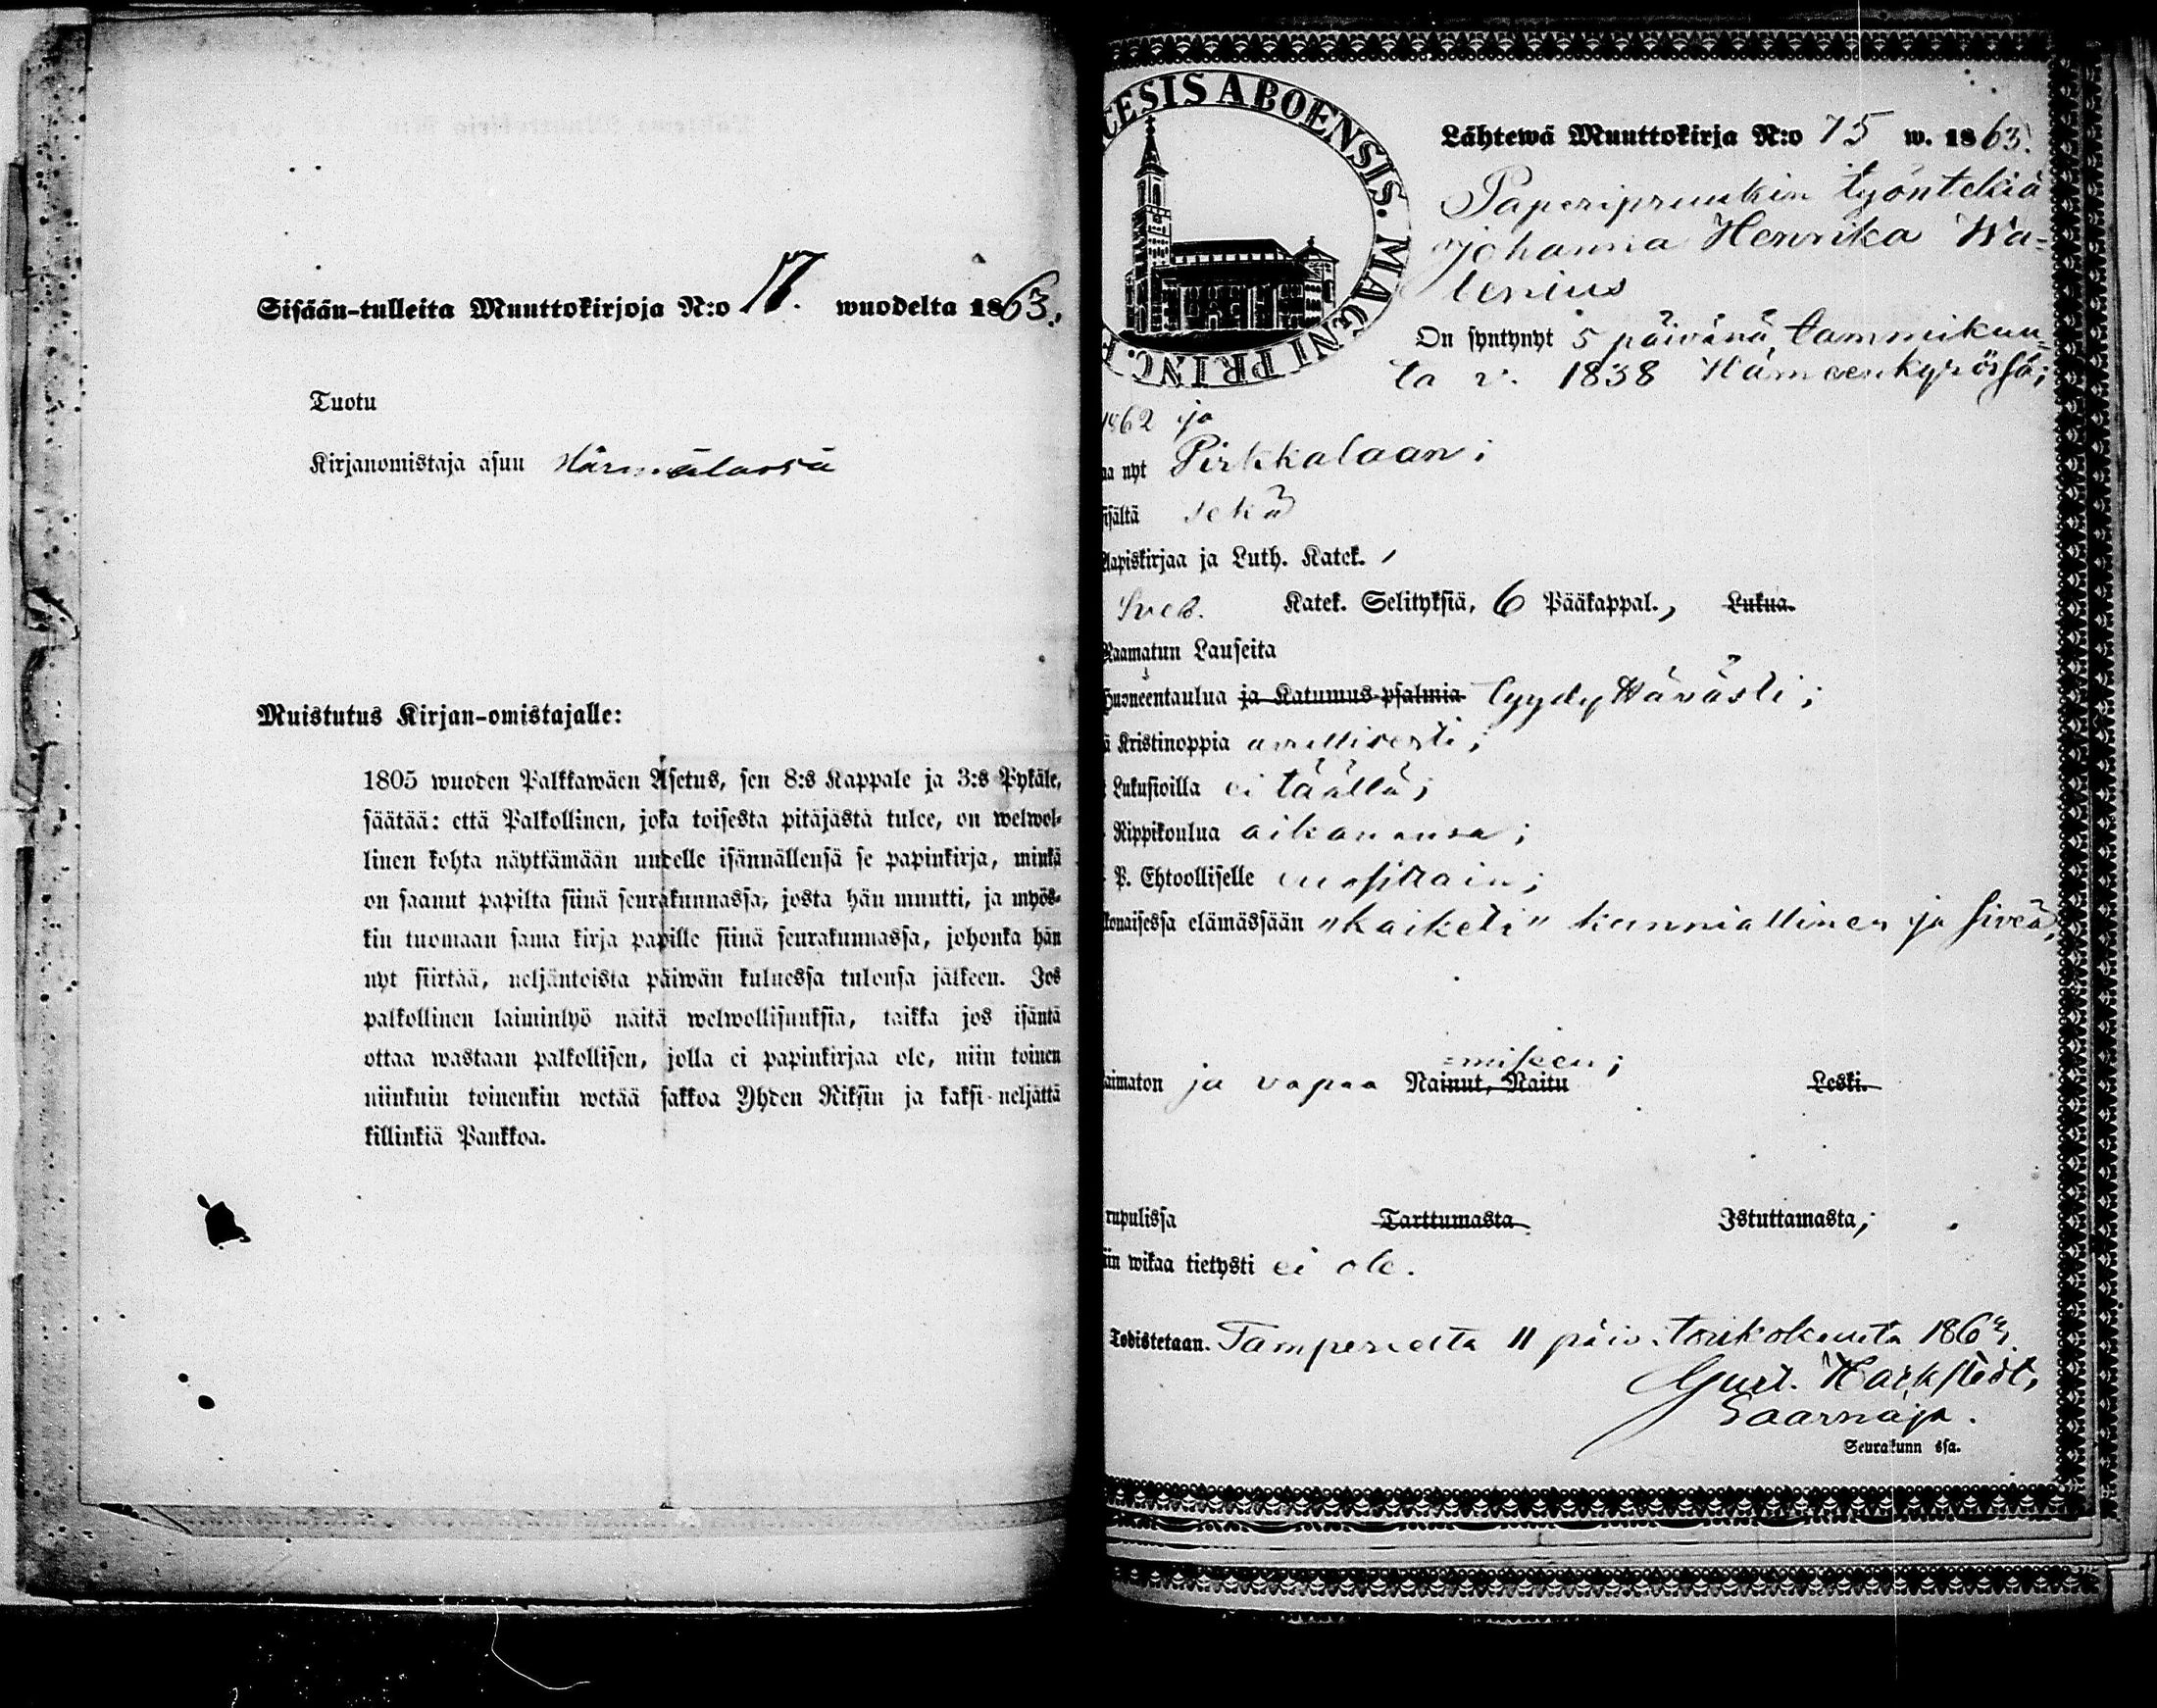 Sisään-tulleita Muuttokirjoja N:o 17. wuodelta 1863.
Tuotu
Kirjanomistaja asuu Härmälassä
Muistutus Kirjan-omistajalle:
1805 wuoden Palkkawäen Asetus, sen 8:s Kappale ja 3:s Pykäle,
säätää: että Palkollinen, joka toisesta pitäjästä tulee, on welwol-
linen kohta näyttämään uudelle isännällensä se papinkirja, minkä
on saanut papilta siinä seurakunnassa, josta hän muutti, ja myös-
kin tuomaan sama kirja papille siinä seurakunnassa, johonka hän
nyt siirtää, neljäntoista päiwän kuluessa tulonsa jälkeen. Jos
palkollinen laiminlyö näitä welwollisuuksia, taikka jos isäntä
ottaa wastaan palkollisen, jolla ei papinkirjaa ole, niin toinen
niinkuin toinenkin wetää sakkoa Yhden Riksin ja kaksi-neljättä
killinkiä Pankkoa.
TESIS ABOENSIS. MAGNI PRINC. F
Lähtewä Muuttokirja N:o 75 w. 1863.
Paperipruukin työntekiä
Johanna Henrika Wa=
lenius
On syntynyt 5 päivänä tammikuu=
ta v. 1838 Hämeenkyrössä;
1862 ja
aa nyt Pirkkalaan;
sisältä sekä
Aapiskirjaa ja Luth. Katek.,
Sveb. Katek. Selityksiä, 6 Pääkappal., Lukua.
Raamatun Lauseita
Huoneentaulua ja Katumus-psalmia tyydyttävästi;
ä Kristinoppia avullisesti;
Lukusioilla ei täällä;
Rippikoulua aikanansa;
P. Ehtoolliselle vuosittain;
lkonaisessa elämässään "kaiketi" kunniallinen ja siveä;
=miseen;
aimaton ja vapaa Nainut, Naitu Leski.
rupulissa Tarttumasta Istuttamasta;
iin wikaa tietysti ei ole.
Todistetaan. Tampereelta 11 päiv. toukokuuta 1863.
Gust. Harkstedt,
Saarnaja.
Seurakunn ssa.